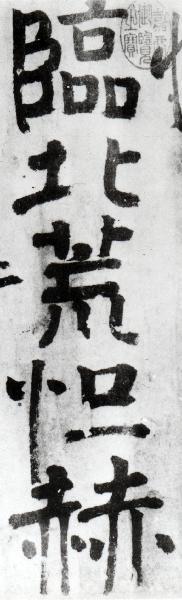 臨北荒怛赫